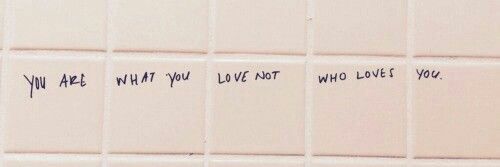 YOU ARE WHAT YOU LOVE NOT WHO LOVES YOU.